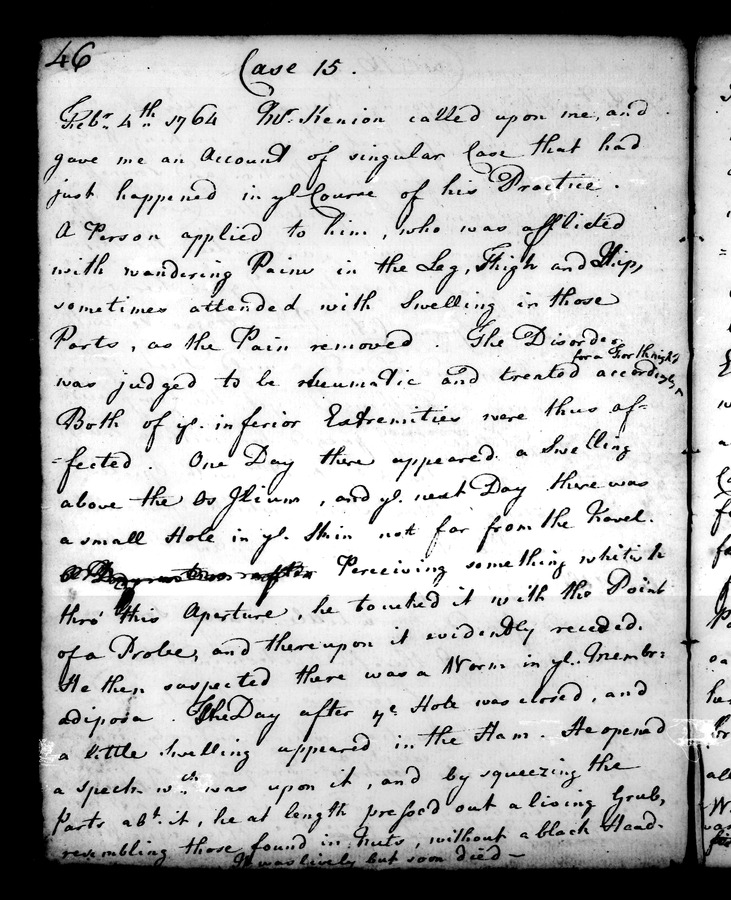 46
Case 15.
Febr. 4th 1764 Mr. Kenion called upon me, and
gave me an Account of singular Case that had
just happened in ye Course of his Practice.
A Person applied to him, who was afflicted
with wandering Pains in the Leg, Thigh and Hip,
sometimes attended with Swelling in those
Parts, as the Pain removed. The Disorder
for a Forthnight
was judged to be rheumatic and treated accordingly ^
Both of ye. inferior Extremities were thus af=
=fected. One Day there appeared a Swelling
above the Os Ilium, and ye. next Day there was
a small Hole in ye. Skin not far from the Navel.
Perceiving something whitish
thro' this Aperture, he touched it with the Point
of a Probe, and thereupon it evidently receded.
He then suspected there was a Worm in ye. Membr:
adiposa. The Day after ye Hole was closed, and
a little Swelling appeared in the Ham. He opened
a speck wch. was upon it, and by squeezing the
Parts abt. it, he at length pressed out a living Grub,
resembling those found in Nuts, without a black Head.
It was lively but soon died —